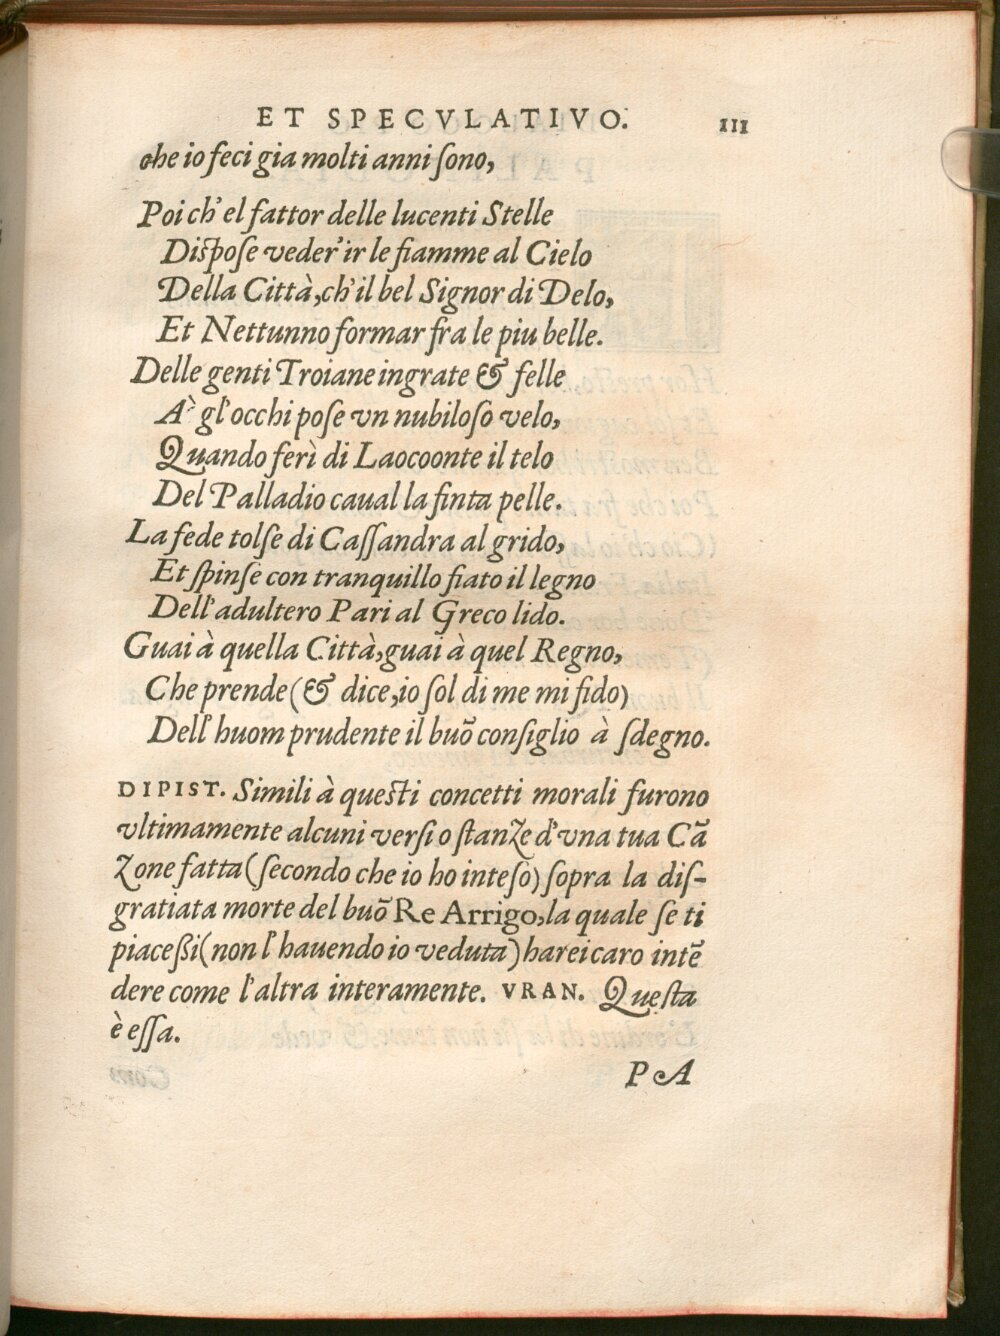 ET SPECVLATIVO. III
che io feci gia molti anni ſono,
Poi ch'el fattor delle lucenti Stelle
Diſpoſe veder'ir le fiamme al Cielo
Della Città, ch'il bel Signor di Delo,
Et Nettunno formar fra le piu belle.
Delle genti Troiane ingrate & felle
A' gl'occhi poſe vn nubiloſo velo,
Quando ferì di Laocoonte il telo
Del Palladio caual la finta pelle.
La fede tolſe di Caſſandra al grido,
Et ſpinſe con tranquillo fiato il legno
Dell'adultero Pari al Greco lido.
Guai à quella Città, guai à quel Regno,
Che prende (& dice, io ſol di me mi fido)
Dell'huom prudente il buõ conſiglio à ſdegno.
DIPIST. Simili à queſti concetti morali furono
vltimamente alcuni verſi o ſtanze d'vna tua Cã
zone fatta (ſecondo che io ho inteſo) ſopra la diſ-
gratiata morte del buõ Re Arrigo, la quale ſe ti
piaceßi (non l'hauendo io veduta) harei caro intẽ
dere come l'altra interamente. VRAN. Queſta
è eſſa.
PA